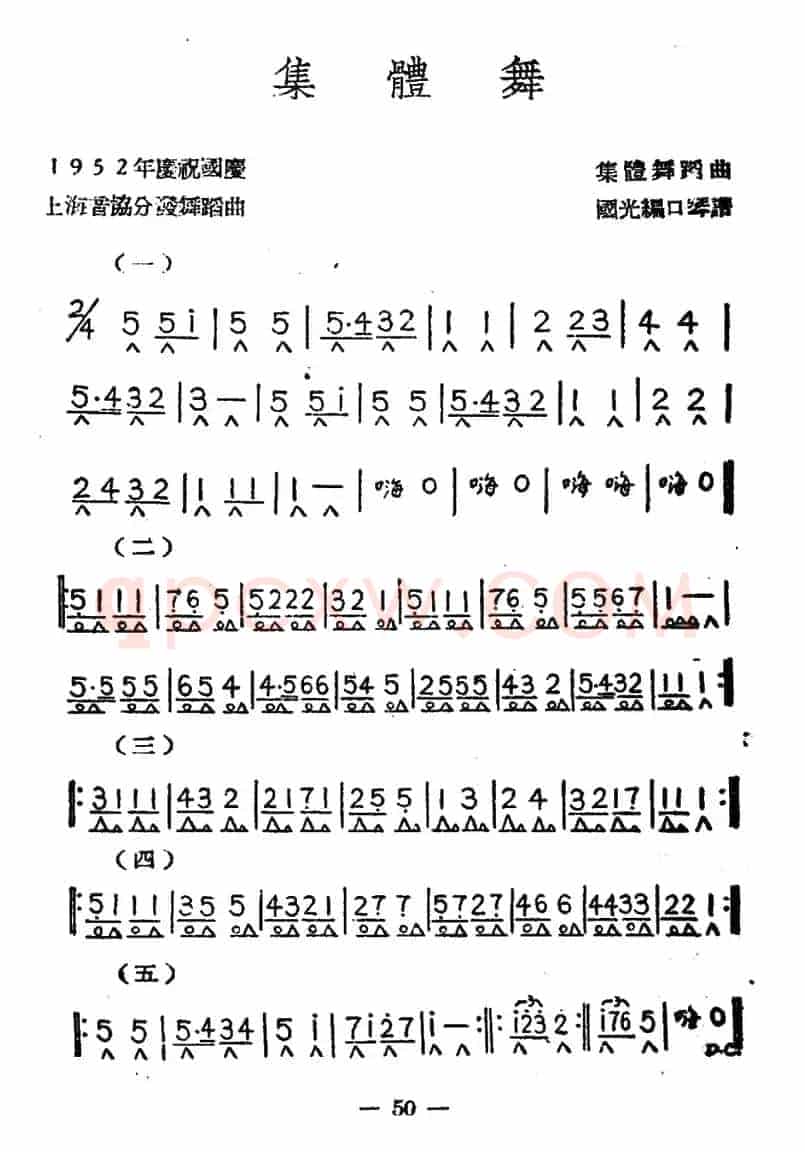 集體舞
1952年慶祝國慶 集體舞蹈曲
上海音協分發舞蹈曲 國光編口琴譜
(一)
2/4 5 5i | 5 5 | 5·432 | 1 1 | 2 23 | 4 4 |
5·432 | 3 — | 5 5i | 5 5 | 5·432 | 1 1 | 2 2 |
2432 | 1 11 | 1 — | 嗨 0 | 嗨 0 | 嗨 嗨 | 嗨 0 ‖
(二)
‖: 5111 | 76 5 | 5222 | 32 1 | 5111 | 76 5 | 5567 | 1 — |
5·555 | 65 4 | 4·566 | 54 5 | 2555 | 43 2 | 5·432 | 11 1 :‖
(三)
‖: 3111 | 43 2 | 2171 | 25 5 | 1 3 | 2 4 | 3217 | 11 1 :‖
(四)
‖: 5111 | 35 5 | 4321 | 27 7 | 5727 | 46 6 | 4433 | 22 1 :‖
(五)
‖: 5 5 | 5·434 | 5 i | 7i27 | i — :‖: i23 2 :‖: i76 5 | 嗨 0 ‖
D.C.
— 50 —
qpcxw.com